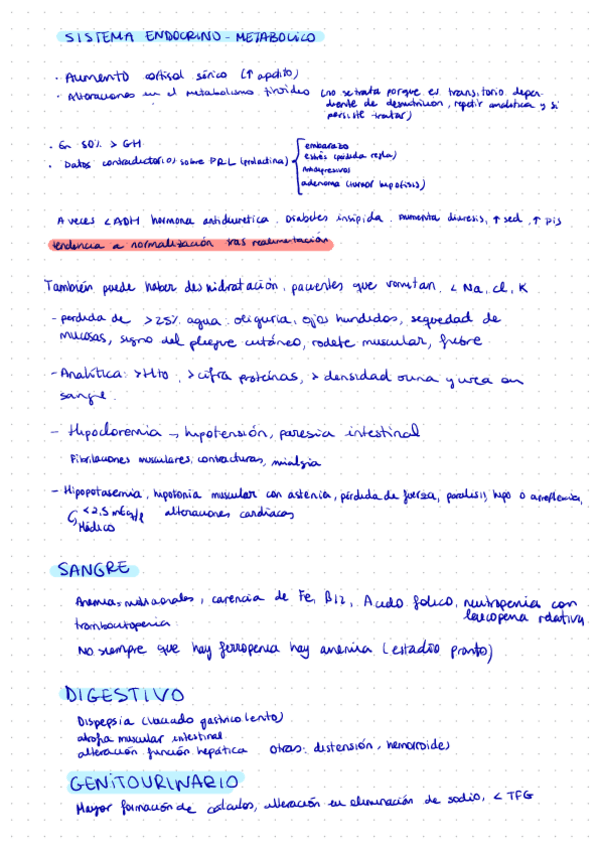 SISTEMA ENDOCRINO - METABOLICO
· Aumento cortisol sérico (↑ apetito)
· Alteraciones en el metabolismo tiroideo (no se trata porque es transitorio depen-
diente de desnutricion, repetir analitica y si
persiste tratar)
· En 50% > GH
· Datos contradictorios sobre PRL (prolactina)
embarazo
estrés (perdida regla)
Antidepresivos
adenoma (tumor hipofisis)
A veces < ADH hormona antidiuretica. Diabetes insipida. aumenta diuresis, ↑ sed, ↑ pis
tendencia a normalización tras realimentación
También puede haber deshidratación, pacientes que vomitan. < Na, Cl, K
- perdida de > 25% agua: oliguria, ojos hundidos, sequedad de
mucosas, signo del pliegue cutáneo, rodete muscular, fiebre
- Analitica: > Hto, > cifra proteinas, > densidad orina y urea en
sangre.
- Hipocloremia → hipotensión, paresia intestinal
Fibrilaciones musculares, contracturas, mialgia
- Hipopotasemia, hipotonia muscular con astenia, pérdida de fuerza, paralisis, hipo o arreflexia,
< 2.5 mEq/l alteraciones cardiacas
Médico
SANGRE
Anemias nutricionales, carencia de Fe, B12, Acido folico, neutropenia con
leucopenia relativa
trombocitopenia
No siempre que hay ferropenia hay anemia (estadio pronto)
DIGESTIVO
Dispepsia (vaciado gastrico lento)
atrofia muscular intestinal
alteración función hepática otras: distensión, hemorroides
GENITOURINARIO
Mayor formación de calculos, alteración en eliminación de sodio, < TFG